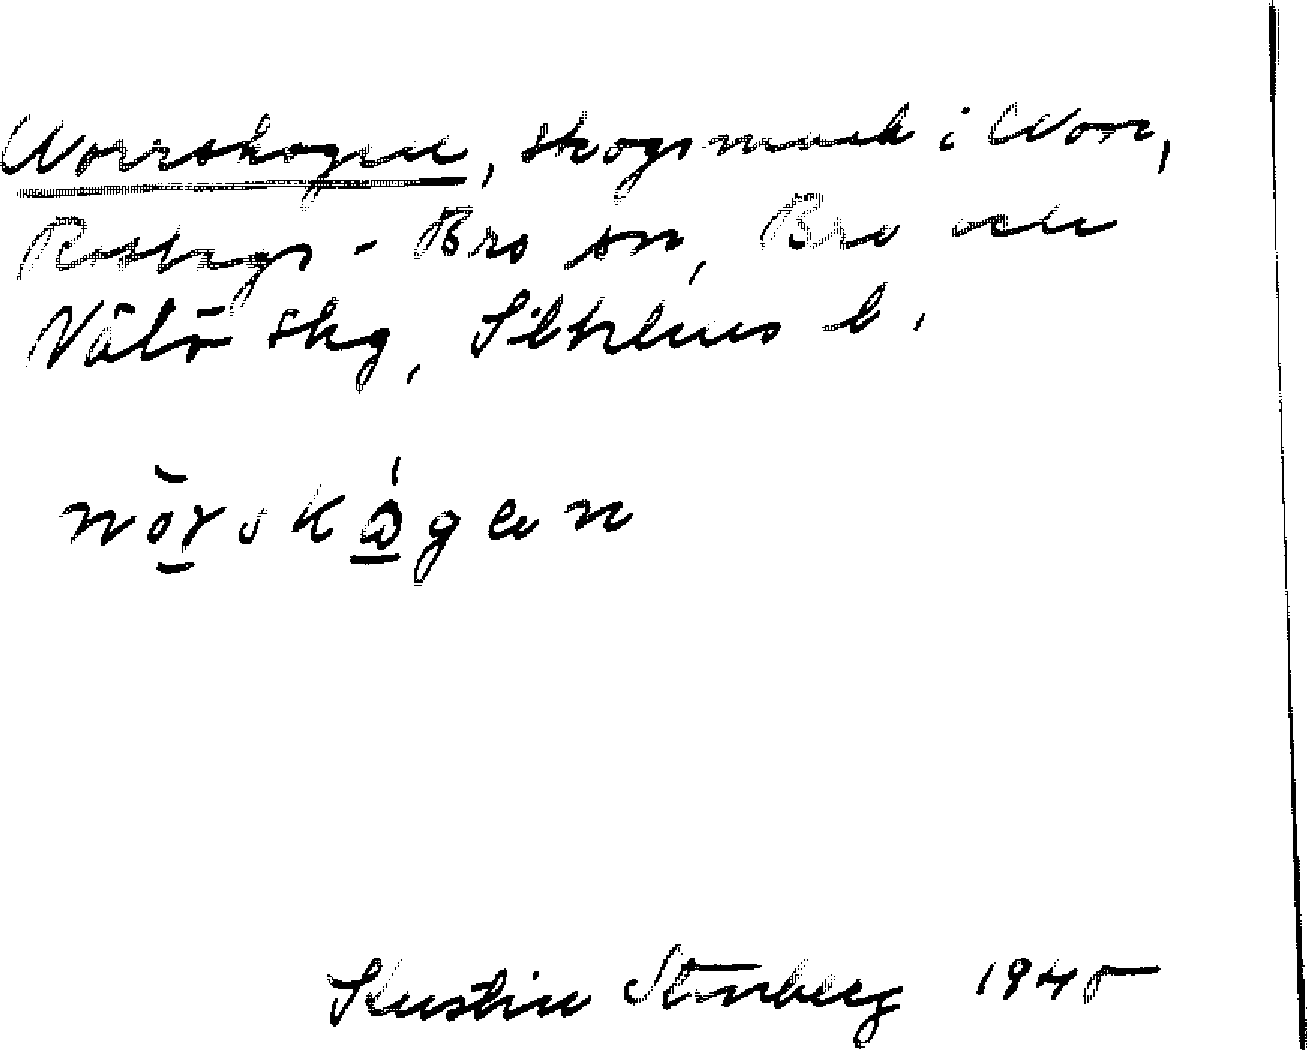 Norrskogen, skogsmark i Norr,
Rosbygs - Bro sn, Bro och
Vätö skg, Sthlms l.
nòrskǻgen
Kerstin Stenberg 1945